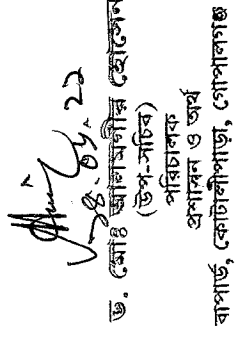 ১৪.০৮.২২
ড. মোঃ আলমগীর হোসেন
(উপ-সচিব)
পরিচালক
প্রশাসন ও অর্থ
বাপার্ড, কোটালীপাড়া, গোপালগঞ্জ